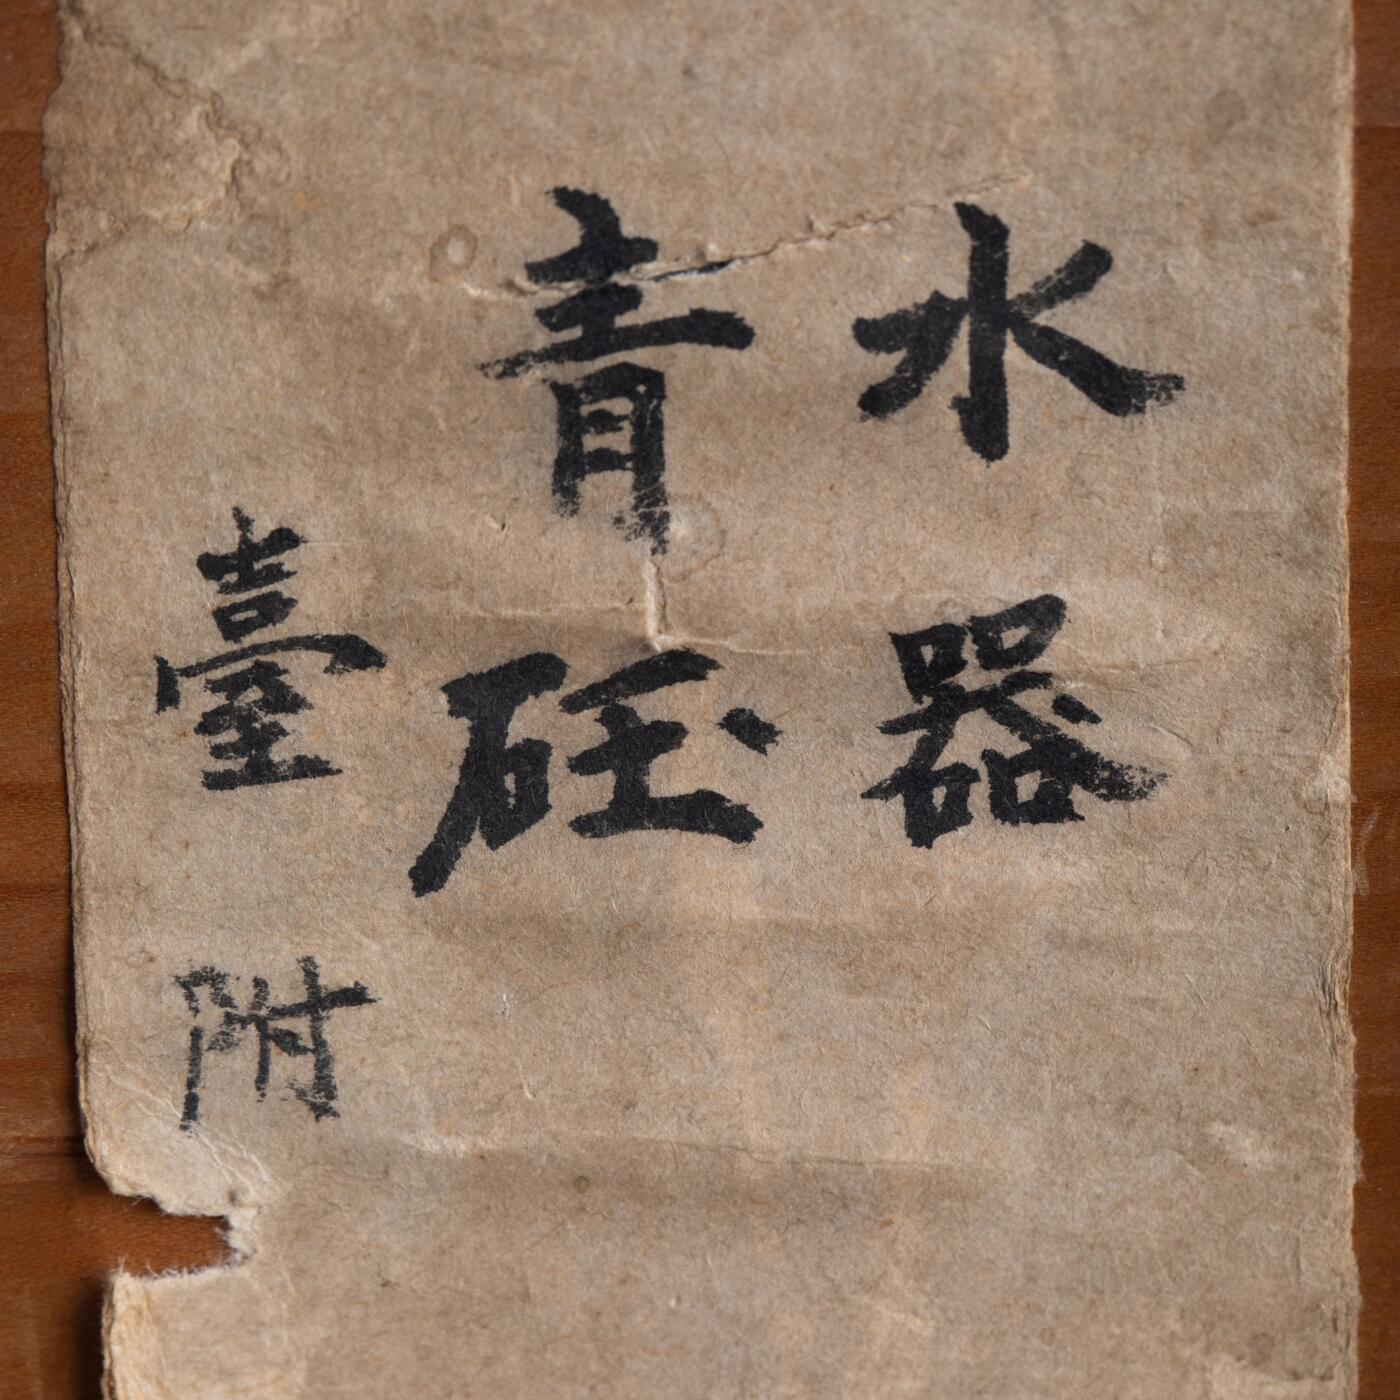 水器
青砡
臺附